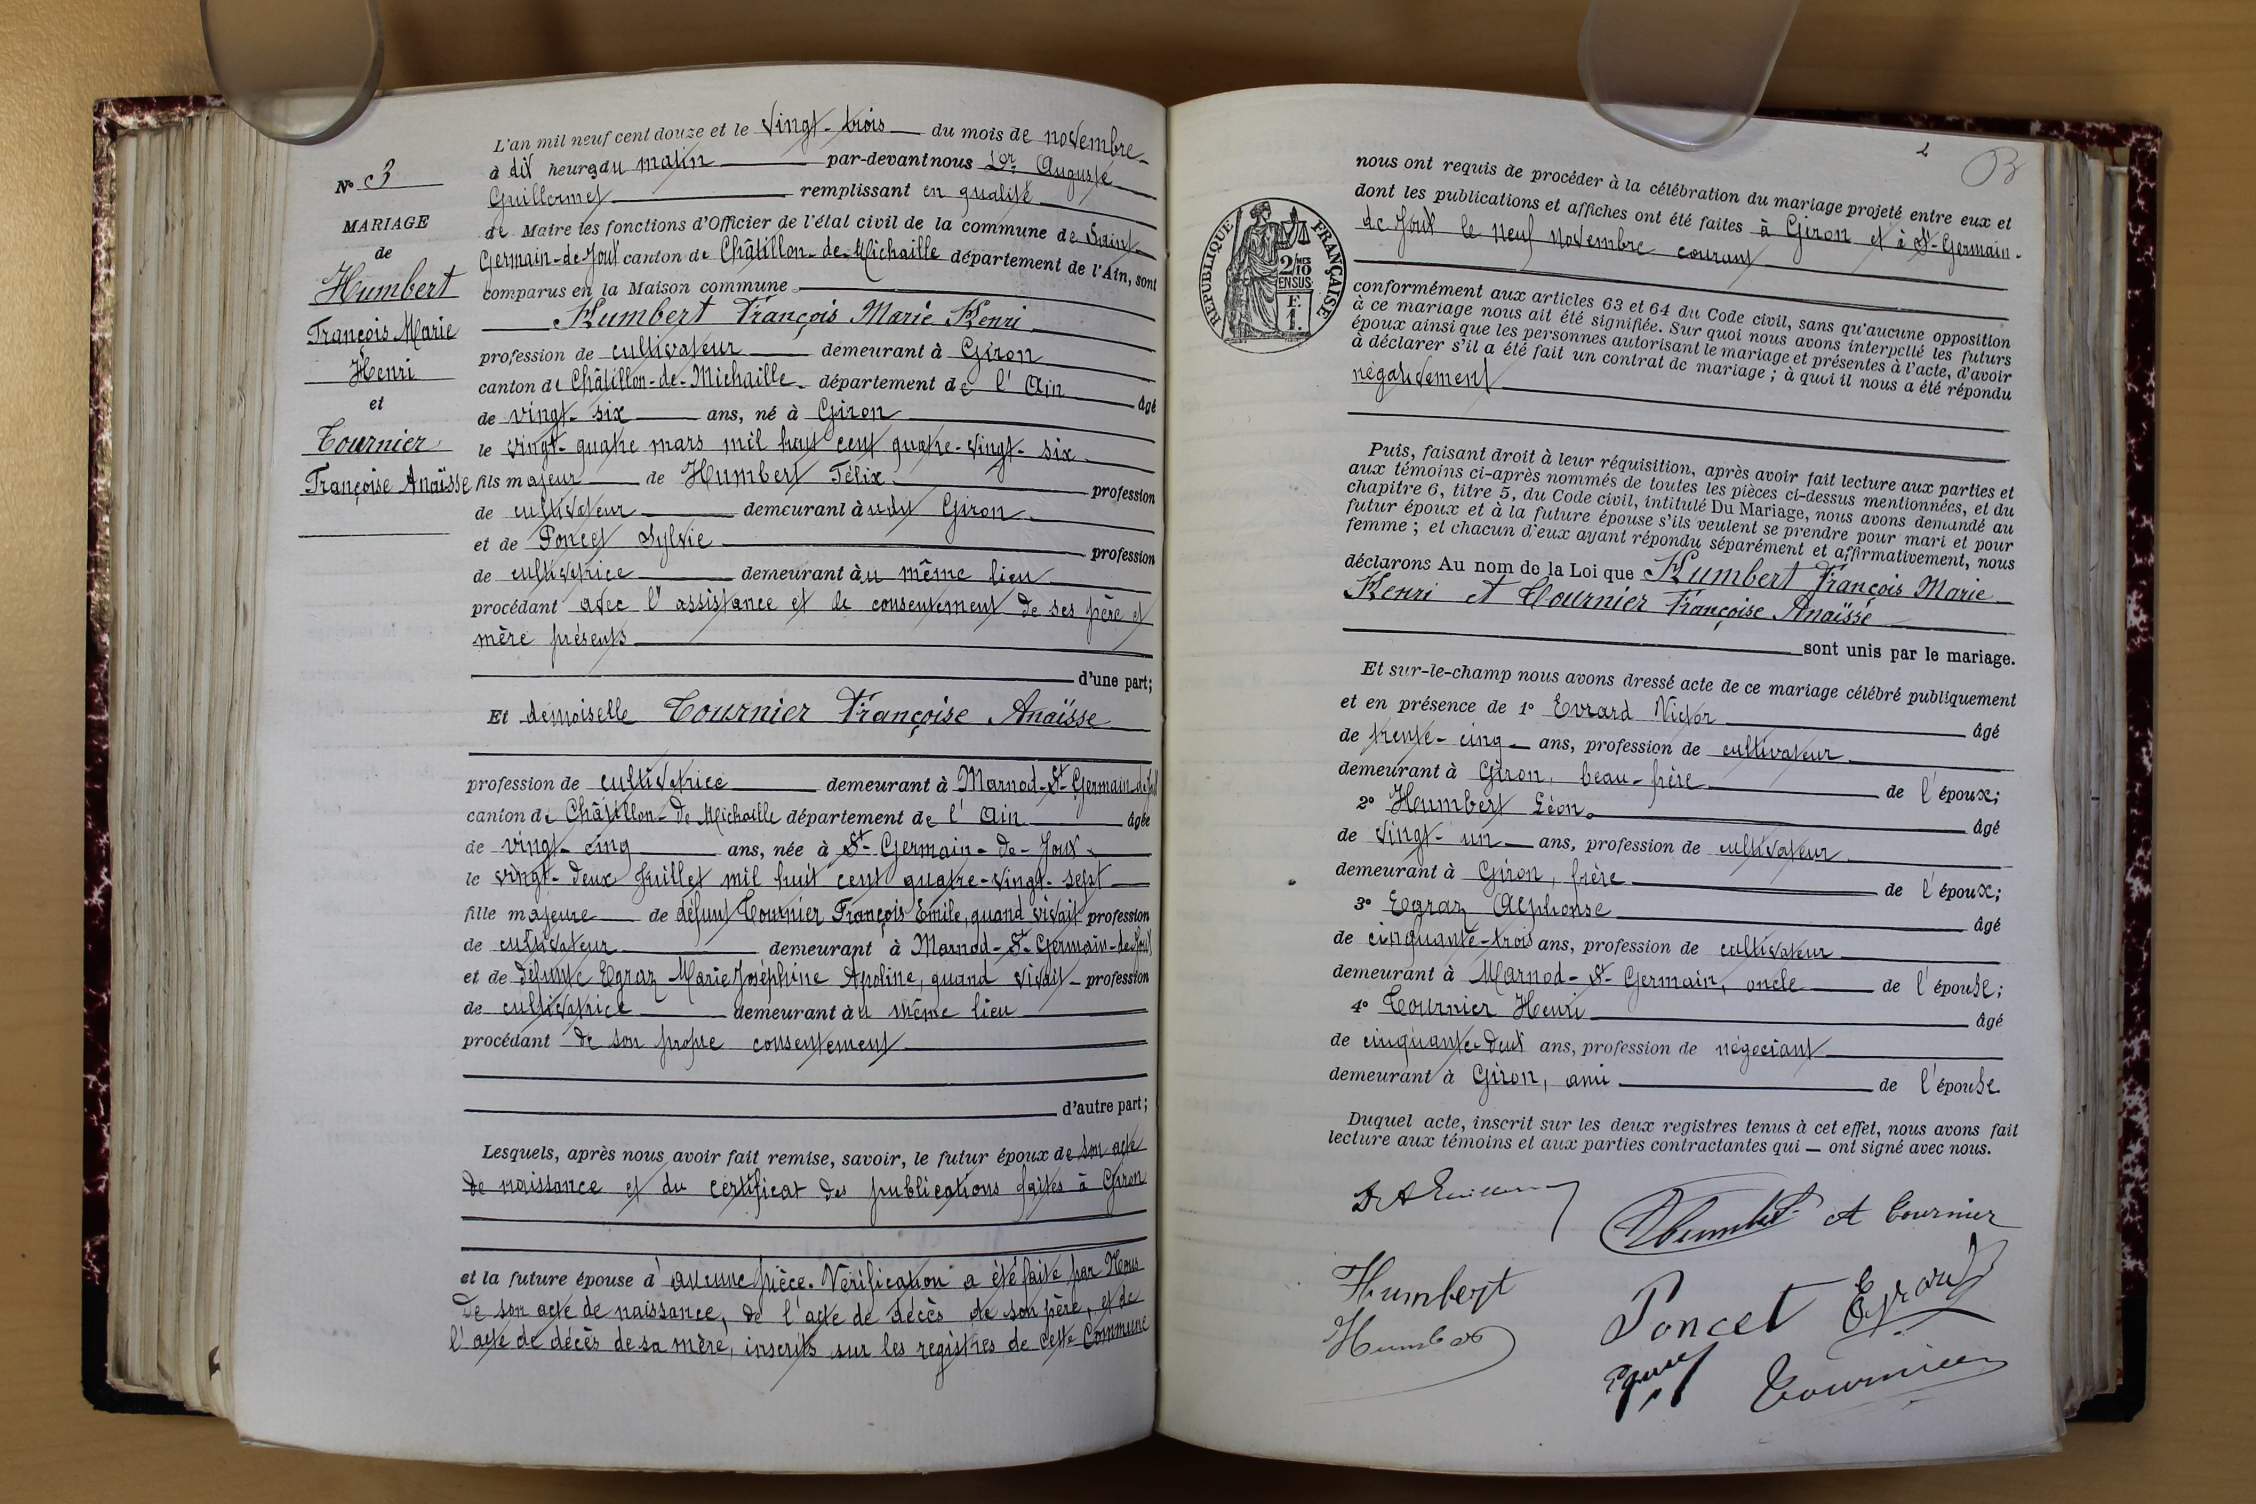 L'an mil neuf cent douze et le vingt-trois du mois de novembre
à dix heures du matin par-devant nous Dor Auguste
Guillermet remplissant en qualité
de Maire les fonctions d'Officier de l'état civil de la commune de Saint-
Germain-de-Joux canton de Châtillon-de-Michaille département de l'Ain, sont
comparus en la Maison commune
Humbert François Marie Henri
profession de cultivateur demeurant à Giron
canton de Châtillon-de-Michaille département de l'Ain âgé
de vingt-six ans, né à Giron
le vingt-quatre mars mil huit cent quatre-vingt-six
fils majeur de Humbert Félix profession
de cultivateur demeurant à udit Giron
et de Poncet Sylvie profession
de cultivatrice demeurant à u même lieu
procédant avec l'assistance et le consentement de ses père et
mère présents
d'une part;
Et demoiselle Tournier Françoise Anaïsse
profession de cultivatrice demeurant à Marnod-St-Germain-de-Joux
canton de Châtillon-de-Michaille département de l'Ain âgée
de vingt-cinq ans, née à St-Germain-de-Joux
le vingt-deux Juillet mil huit cent quatre-vingt-sept
fille majeure de défunt Tournier François Emile, quand vivait profession
de cultivateur demeurant à Marnod-St-Germain-de-Joux
et de défunte Egraz Marie Joséphine Apoline, quand vivait profession
de cultivatrice demeurant à u même lieu
procédant de son propre consentement
d'autre part;
Lesquels, après nous avoir fait remise, savoir, le futur époux de son acte
de naissance et du certificat des publications faites à Giron
et la future épouse d'aucune pièce. Vérification a été faite par Nous
De son acte de naissance, de l'acte de décès de son père, et de
l'acte de décès de sa mère, inscrits sur les registres de cette Commune
No 3
MARIAGE
de
Humbert
François Marie
Henri
et
Tournier
Françoise Anaïsse
2
RÉPUBLIQUE FRANÇAISE
2/10 EN SUS
F.
1.
nous ont requis de procéder à la célébration du mariage projeté entre eux et
dont les publications et affiches ont été faites à Giron et à St-Germain-
de Joux le neuf novembre courant
conformément aux articles 63 et 64 du Code civil, sans qu'aucune opposition
à ce mariage nous ait été signifiée. Sur quoi nous avons interpellé les futurs
époux ainsi que les personnes autorisant le mariage et présentes à l'acte, d'avoir
à déclarer s'il a été fait un contrat de mariage; à quoi il nous a été répondu
négativement
Puis, faisant droit à leur réquisition, après avoir fait lecture aux parties et
aux témoins ci-après nommés de toutes les pièces ci-dessus mentionnées, et du
chapitre 6, titre 5, du Code civil, intitulé Du Mariage, nous avons demandé au
futur époux et à la future épouse s'ils veulent se prendre pour mari et pour
femme; et chacun d'eux ayant répondu séparément et affirmativement, nous
déclarons Au nom de la Loi que Humbert François Marie
Henri et Tournier Françoise Anaïsse
sont unis par le mariage.
Et sur-le-champ nous avons dressé acte de ce mariage célébré publiquement
et en présence de 1° Evrard Victor âgé
de trente-cinq ans, profession de cultivateur
demeurant à Giron, beau-frère de l'époux;
2° Humbert Léon âgé
de vingt-un ans, profession de cultivateur
demeurant à Giron, frère de l'époux;
3° Egraz Alphonse âgé
de cinquante-trois ans, profession de cultivateur
demeurant à Marnod-St-Germain, oncle de l'épouse;
4° Tournier Henri âgé
de cinquante-deux ans, profession de négociant
demeurant à Giron, ami de l'épouse
Duquel acte, inscrit sur les deux registres tenus à cet effet, nous avons fait
lecture aux témoins et aux parties contractantes qui — ont signé avec nous.
Humbert A Tournier
Humbert Poncet Evrard
Humbert Tournier